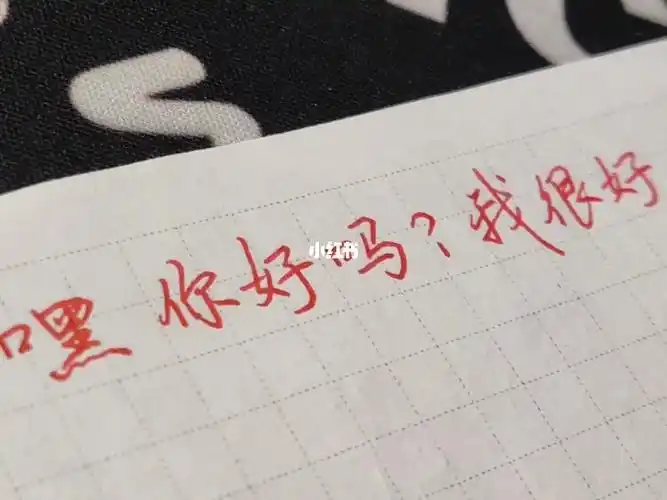 嘿 你好吗?我很好
小红书